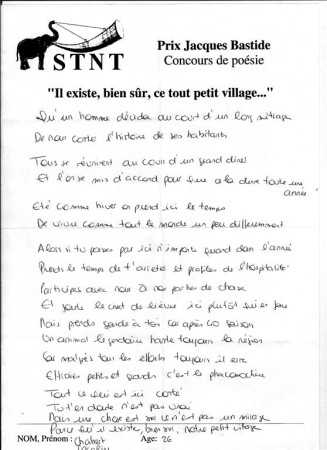 STNT
Prix Jacques Bastide
Concours de poésie
"Il existe, bien sûr, ce tout petit village..."
Qu'un homme décida au court d'un long métrage
De nous conter l'histoire de ses habitants
Tous se réunirent au cour d'un grand diner
Et l'on se mis d'accord pour à la dure toute une
année
Eté comme hiver on prend ici le temps
De vivre comme tout le monde un peu différemment
Alors si tu passes par ici n'importe quand dans l'année
Prends le temps de t'arreter et profites de l'hospitalité
Participes avec nous à nos parties de chasse
Et goute le civet de lièvre ici plutôt
Mais prends garde à toi car après 40 saison
Un animal légendaire hante toujours la région
Car malgrès tous les efforts toujours il erre
Effraies petits et grands c'est le phacomatière
Tout ce qui est ici conté
Tu t'en doute n'est pas vrai
Mais une chose est sur ce n'est pas un mirage
Parce qu'il existe, bien sur, notre petit village
NOM, Prénom : Chabert
Age: 26